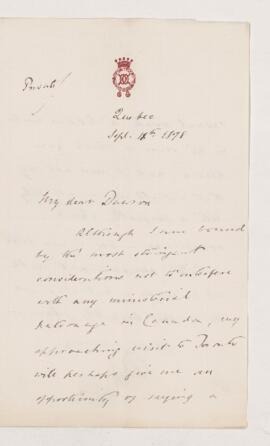 Private
Quebec
Sept. 4th 1878
My dear Dawson
Although I am bound
by the most stringent
considerations not to interfere
with any ministerial
patronage in Canada, my
approaching visit to Toronto
will perhaps give me an
opportunity of saying a